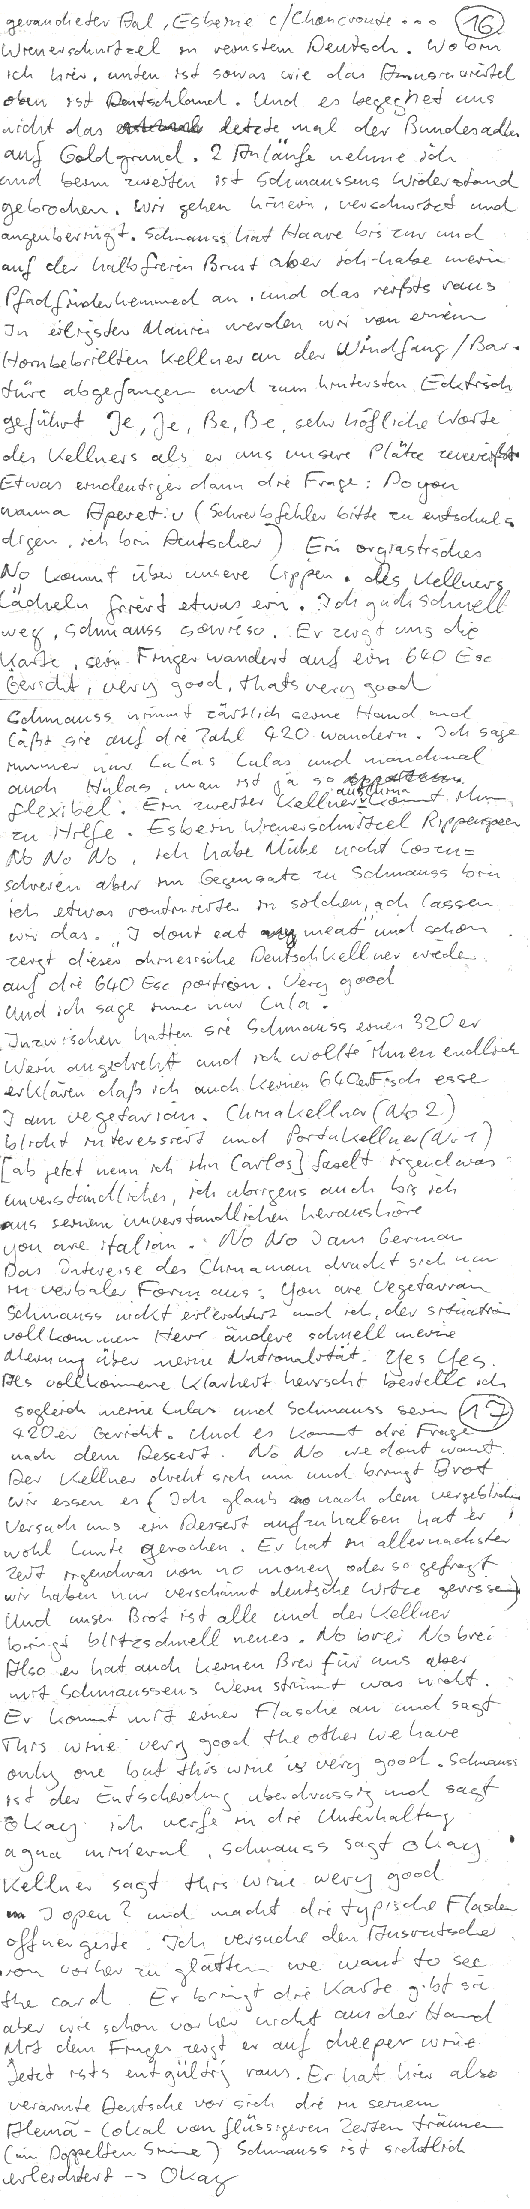 geraucheter Aal, Esberne c/Choucroute... 16
Wienerschnitzel in reinstem Deutsch. Wo bin
ich hier, unten ist sowas wie das Armenviertel
oben ist Deutschland. Und es begegnet uns
nicht das letzte mal der Bundesadler
auf Goldgrund. 2 Anläufe nehme ich
und beim zweiten ist Schmaussens Widerstand
gebrochen. Wir gehen hinein, verschwitzt und
Schmauss hat Haare bis zur und
auf der halbfreien Brust aber ich habe mein
Pfadfinderhemmed an, und das reißts raus
In eiligster Manier werden wir von einem
Hornbebrillten Kellner an der Windfang/Bar-
türe abgefangen und zum hintersten Ecktisch
geführt Je, Je, Be, Be, sehr höfliche Worte
des Kellners als er uns unsere Plätze zuweißt
Etwas eindeutiger dann die Frage: Do you
wanna Aperetiv (Schreibfehler bitte zu entschul-
digen, ich bin Deutscher) Ein orgiastisches
No kommt über unsere Lippen. des Kellners
Lächeln friert etwas ein. Ich guck schnell
weg, Schmauss sowieso. Er zeigt uns die
Karte, sein Finger wandert auf ein 640 Esc
Gericht, very good, thats very good
Schmauss nimmt zärtlich seine Hand und
läßt sie auf die Zahl 420 wandern. Ich sage
immer nur Lulas Lulas und manchmal
auch Hulas, man ist ja so
flexibel. Ein zweiter Kellner aus China kommt ihm
zu Hilfe. Esbein Wienerschnitzel Rippenspeer
No No No, ich habe Mühe nicht loszu=
schreien aber im Gegensatz zu Schmauss bin
ich etwas routinierter in solchen, ach lassen
wir das. "I dont eat any meat" und schon
zeigt dieser chinesische Deutschkellner wieder
auf die 640 Esc portion. Very good
Und ich sage immer nur Lula.
Inzwischen hatten sie Schmauss einen 320er
Wein angedreht und ich wollte ihnen endlich
erklären daß ich auch keinen 640erFisch esse
I am vegetarian. Chinakellner (No 2)
blickt interessiert und Portukellner (Nr 1)
[ab jetzt nenn ich ihn Carlos] faselt irgendwas
unverständliches, ich übrigens auch bis ich
aus seinem unverständlichen heraushöre
you are italian. No No I am German
Das Interesse des Chinaman drückt sich nun
in verbaler Form aus: You are Vegetarian
Schmauss nickt erleichtert und ich, der situation
vollkommen Herr ändere schnell meine
Meinung über meine Nationalität. Yes Yes.
Als vollkommene Klarheit herrscht bestelle ich
sogleich meine Lulas und Schmauss sein 17
420er Gericht. Und es kommt die Frage
nach dem Dessert. No No we dont want
Der Kellner dreht sich um und bringt Brot
wir essen es (Ich glaub nach dem vergeblichen
Versuch uns ein Dessert aufzuhalsen hat er
wohl Lunte gerochen. Er hat in allernächster
Zeit irgendwas von no money oder so gefragt
wir haben nur verschämt deutsche Witze gerissen)
Und unser Brot ist alle und der Kellner
bringt blitzschnell neues. No brei No brei
Also er hat auch keinen Brei für uns aber
mit Schmaussens Wein stimmt was nicht.
Er kommt mit einer Flasche an und sagt
This wine very good the other we have
only one but this wine is very good. Schmauss
ist der Entscheidung überdrüssig und sagt
Okay ich werfe in die Unterhaltung
agua mineral, Schmauss sagt okay.
Kellner sagt this wine wery good
I open? und macht die typische Flaschen
öffnergeste. Ich versuche den Ausrutscher
von vorher zu glätten we want to see
the card Er bringt die Karte gibt sie
aber wie schon vorher nicht aus der Hand
Mit dem Finger zeigt er auf cheeper wine
Jetzt ists entgültig raus. Er hat hier also
verarmte Deutsche vor sich die in seinem
Alemã-Lokal von flüssigeren Zeiten träumen
(im Doppelten Sinne) Schmauss ist sichtlich
erleichtert -> Okay